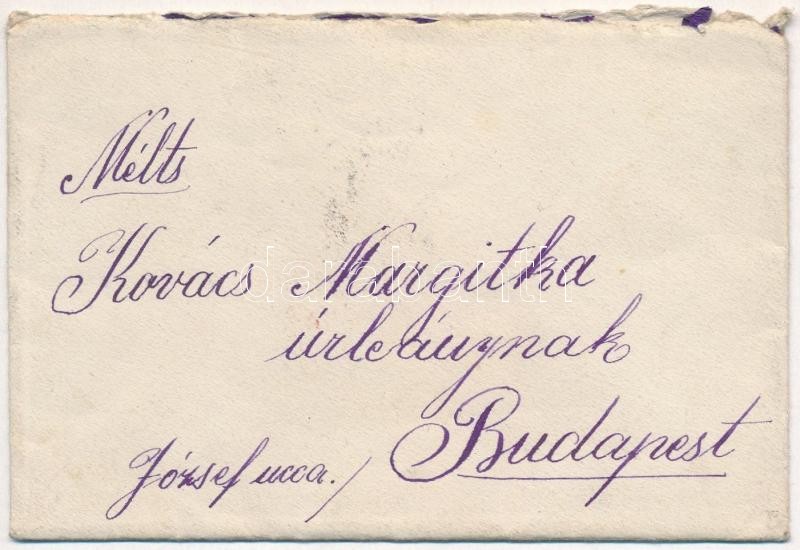 Mélts
Kovács Margitka
úrleánynak
Budapest
József ucca.
darabanth